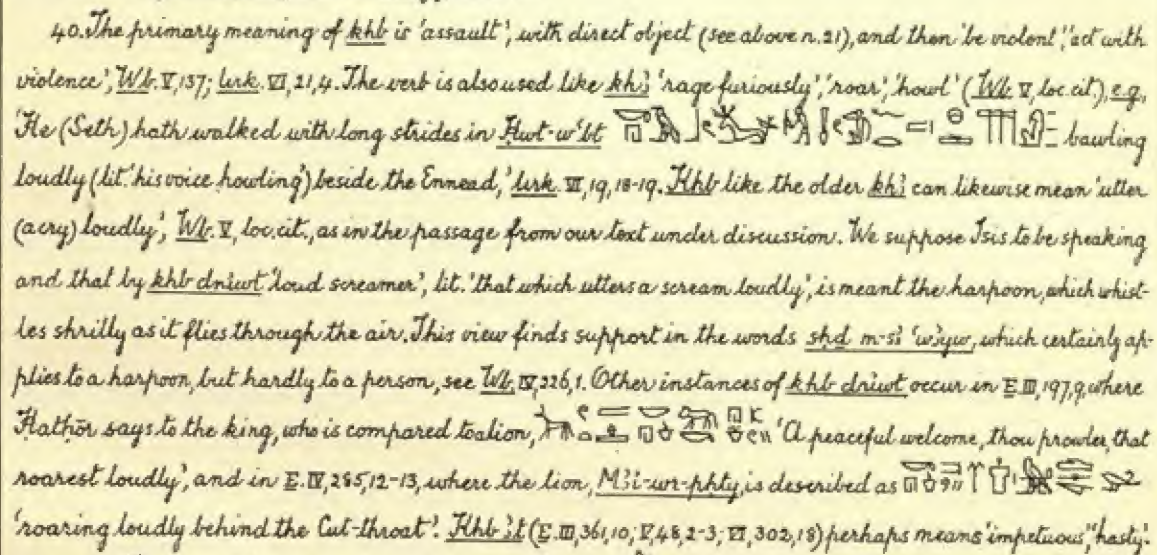 40. The primary meaning of khb is 'assault', with direct object (see above n. 21), and then 'be violent', 'act with
violence', Wb. V, 137; Urk. VI, 21, 4. The verb is also used like khꜣ 'rage furiously', 'roar', 'howl' (Wb. V, loc. cit.), e.g.,
'He (Seth) hath walked with long strides in Ḥwt-wꜥbt bawling
loudly (lit. 'his voice howling') beside the Ennead,' Urk. VI, 19, 18-19. Khb like the older khꜣ can likewise mean 'utter
(a cry) loudly', Wb. V, loc. cit., as in the passage from our text under discussion. We suppose Isis to be speaking
and that by khb dniwt 'loud screamer', lit. 'that which utters a scream loudly', is meant the harpoon, which whist-
les shrilly as it flies through the air. This view finds support in the words which certainly ap-
plies to a harpoon, but hardly to a person, see Wb. IV, 226, 1. Other instances of khb dniwt occur in E. III, 197, 9, where
Hathōr says to the king, who is compared to a lion, 'A peaceful welcome, thou prowler, that
roarest loudly', and in E. IV, 285, 12-13, where the lion, Mꜣi-wr-pḥty, is described as
'roaring loudly behind the Cut-throat'. Khb ꜣt (E. III, 361, 10; V, 48, 2-3; VI, 302, 18) perhaps means 'impetuous', 'hasty'.